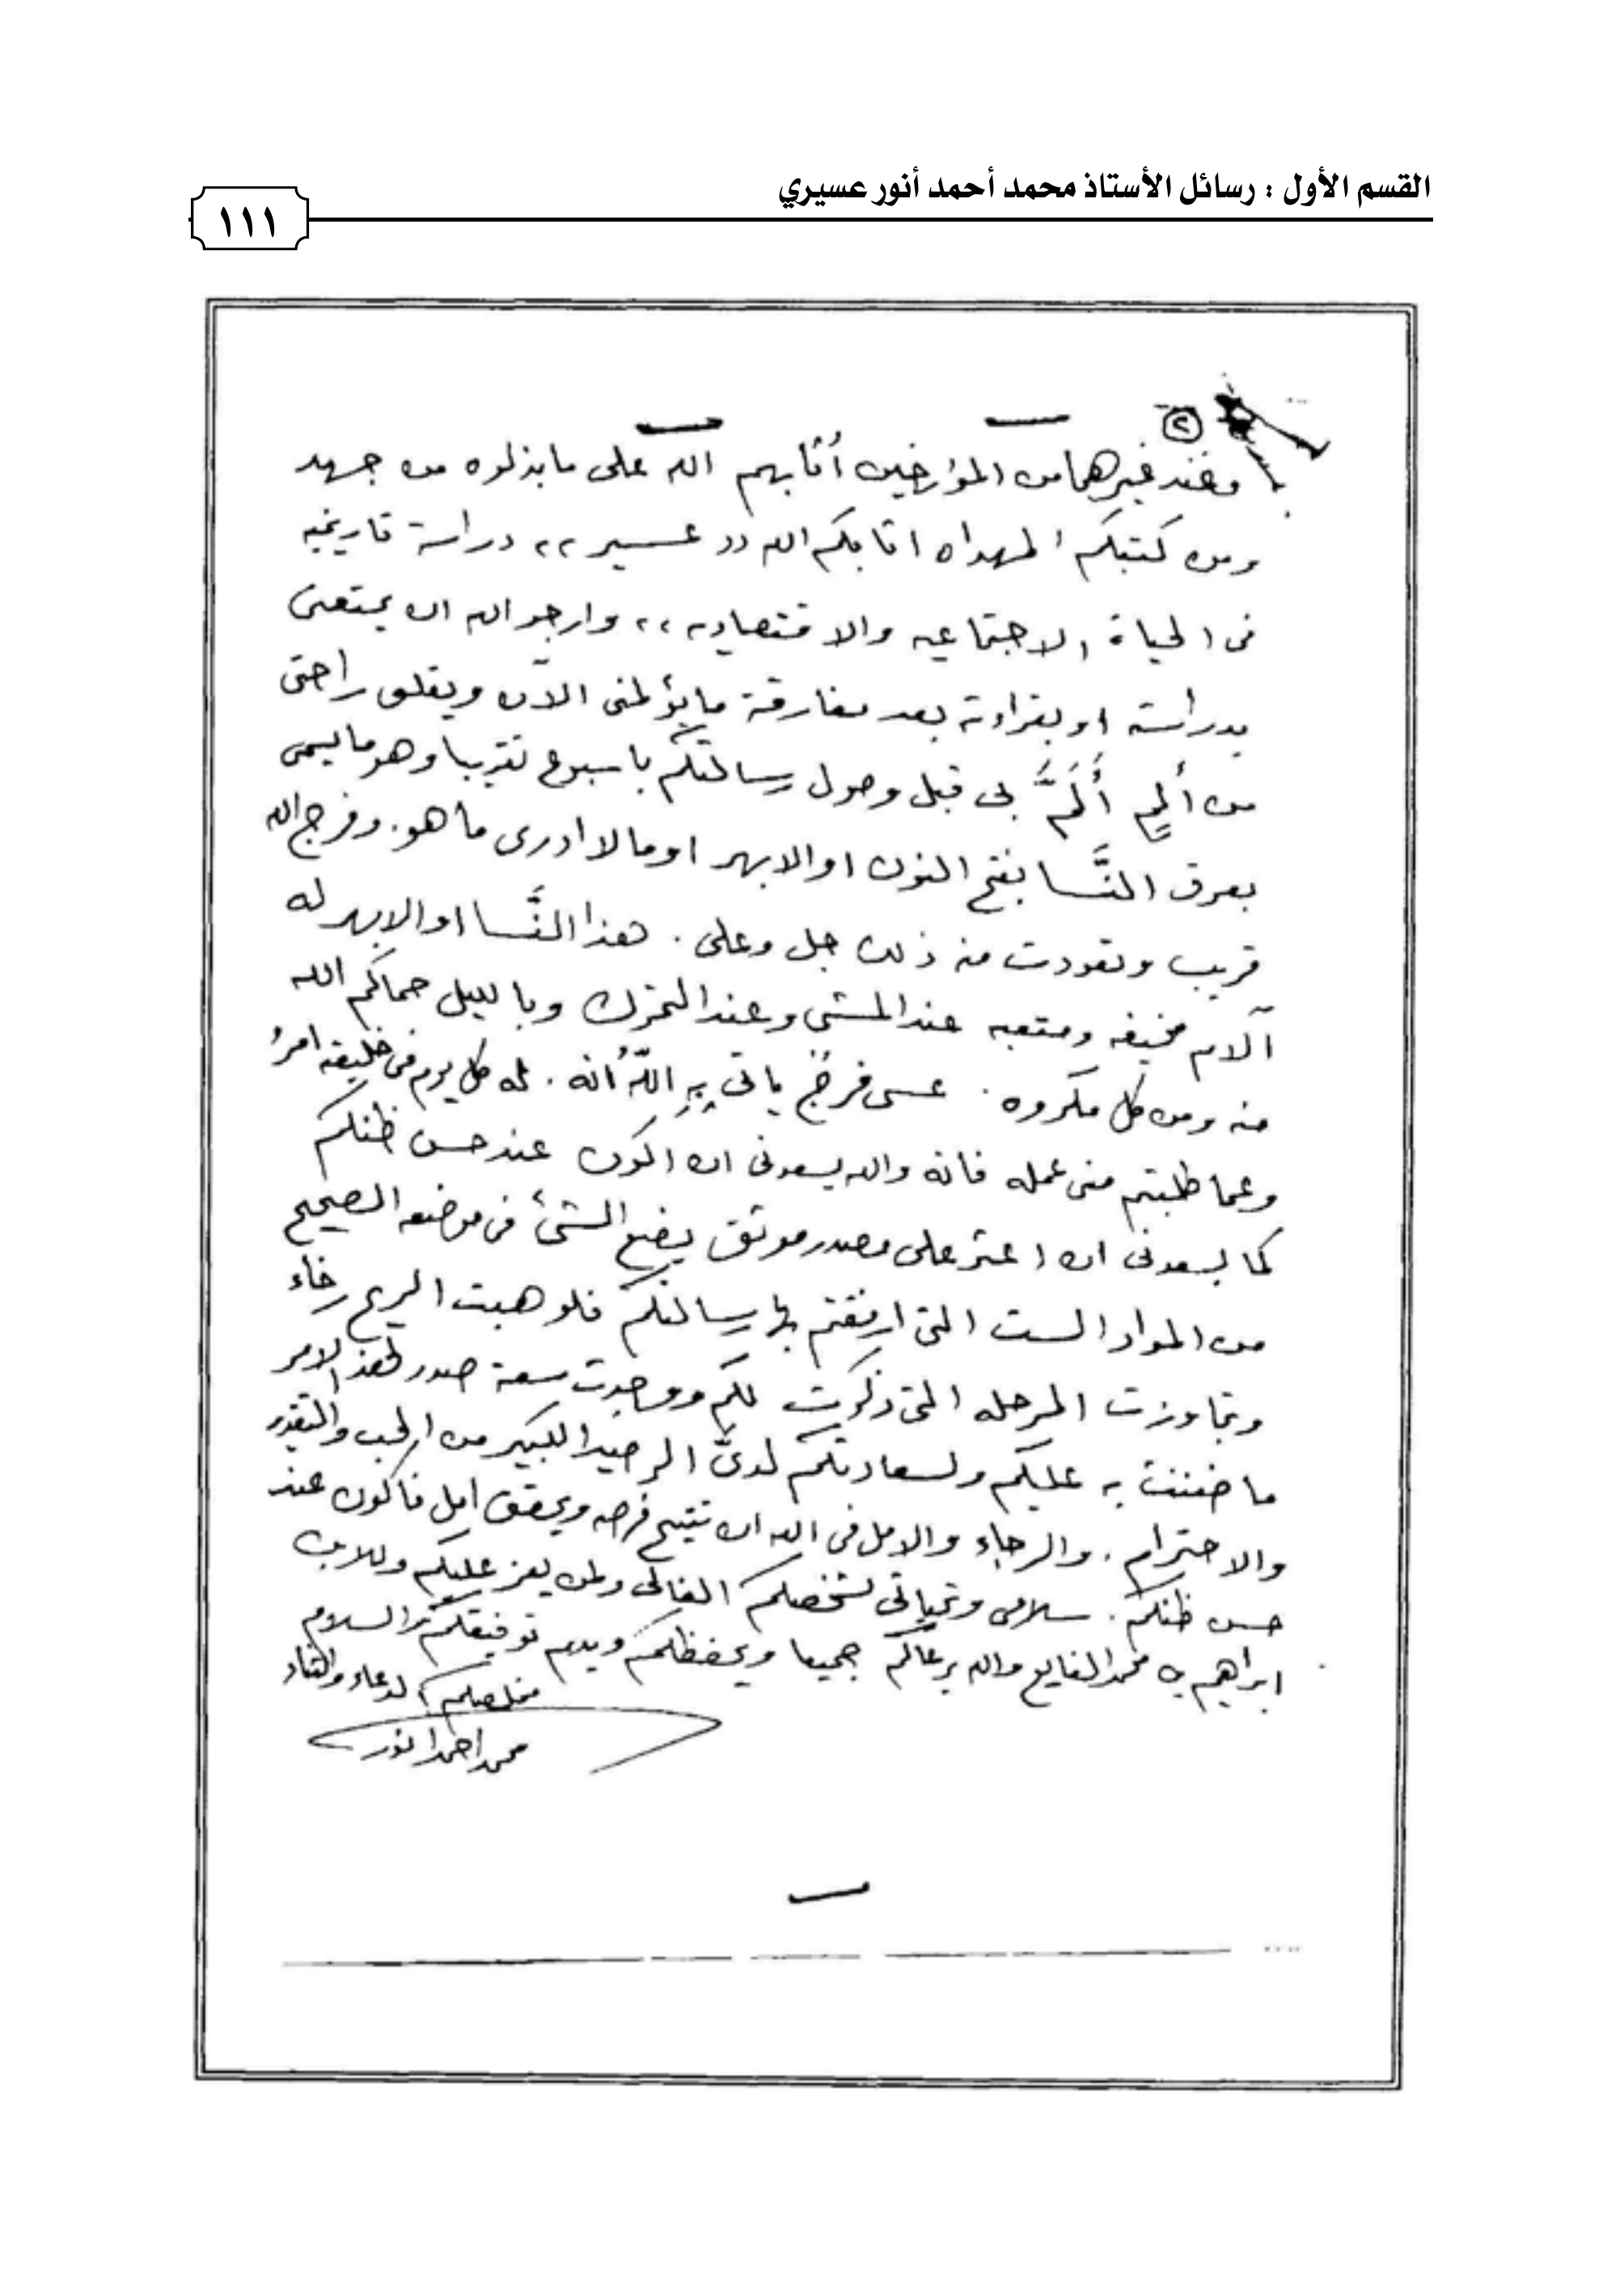 القسم الأول : رسائل الأستاذ محمد أحمد أنور عسيري
١١١
٢
وعند غيرهما من المؤرخين أثابهم الله على ما بذلوه من جهد
ومن كتبكم المهداه اثابكم الله ,, عسير ,, دراسة تاريخيه
فى الحياة الاجتماعيه والاقتصاديه ,, وارجو الله ان يمتعنى
بدراسته او بقراءته بعد مفارقة ما يؤلمنى الآن ويقلق راحتى
من ألمٍ أَلَمَّ بى قبل وصول رسالتكم باسبوع تقريبا وهو ما يسمى
بعرق النَّسا بفتح النون او الابهر او ما لا ادرى ما هو. وفرج الله
قريب وتعودت منه ذلك جل وعلى . هذا النَّسا او الابهر له
آلام مخيفه ومتعبه عند المشى وعند التحرك وبالليل حماكم الله
منه ومن كل مكروه . عسى فرجٌ ياتى بِهِ اللهُ أنه . له كل يوم فى خليقته امرُ
وعما طلبتم منى عمله فانه والله يسعدنى ان اكون عند حسن ظنكم
كما يسعدنى ان اعثر على مصدر موثق يضع الشئ فى موضعه الصحيح
من المواد الست التى ارفقتم بها رسالتكم فلو هبت الريح رخاء
وتجاوزت المرحله التى ذكرت لكم ووجدت سعة صدر لهذا الامر
ما ضننت به عليكم ولسعادتكم لدىَّ الرصيد الكبير من الحب والتقدير
والاحترام . والرجاء والامل فى الله ان تتيح فرصه ويحقق امل فاكون عند
حسن ظنكم . سلامى وتحياتى لشخصكم الغالى ولمن يعز عليكم وللابن
ابراهيم بن محمد الفايع والله يرعاكم جميعا ويحفظكم ويديم توفيقكم والسلام
مخلصكم
محمد احمد انور